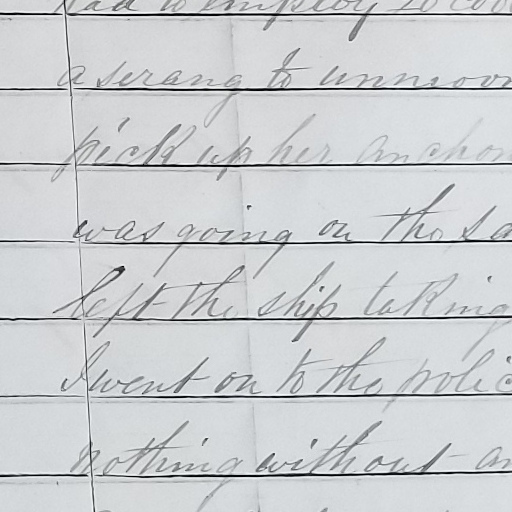 had to employ 20 coo
a serang to unmoor
pick up her anchor
was going on the sa
left the ship taking
I went on to the polic
nothing without an